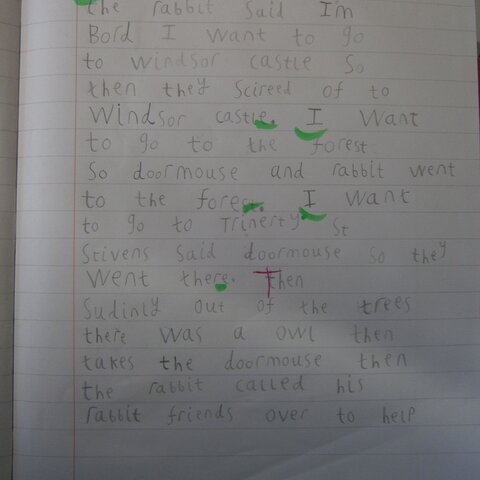 the rabbit said I'm
Bord I want to go
to windsor castle so
then they scireed of to
Windsor castle. I want
to go to the forest
So doormouse and rabbit went
to the forest. I want
to go to Trinerty. St
Stivens said doormouse so they
went there. Then
Sudinly out of the trees
there was a owl then
takes the doormouse then
the rabbit called his
rabbit friends over to help